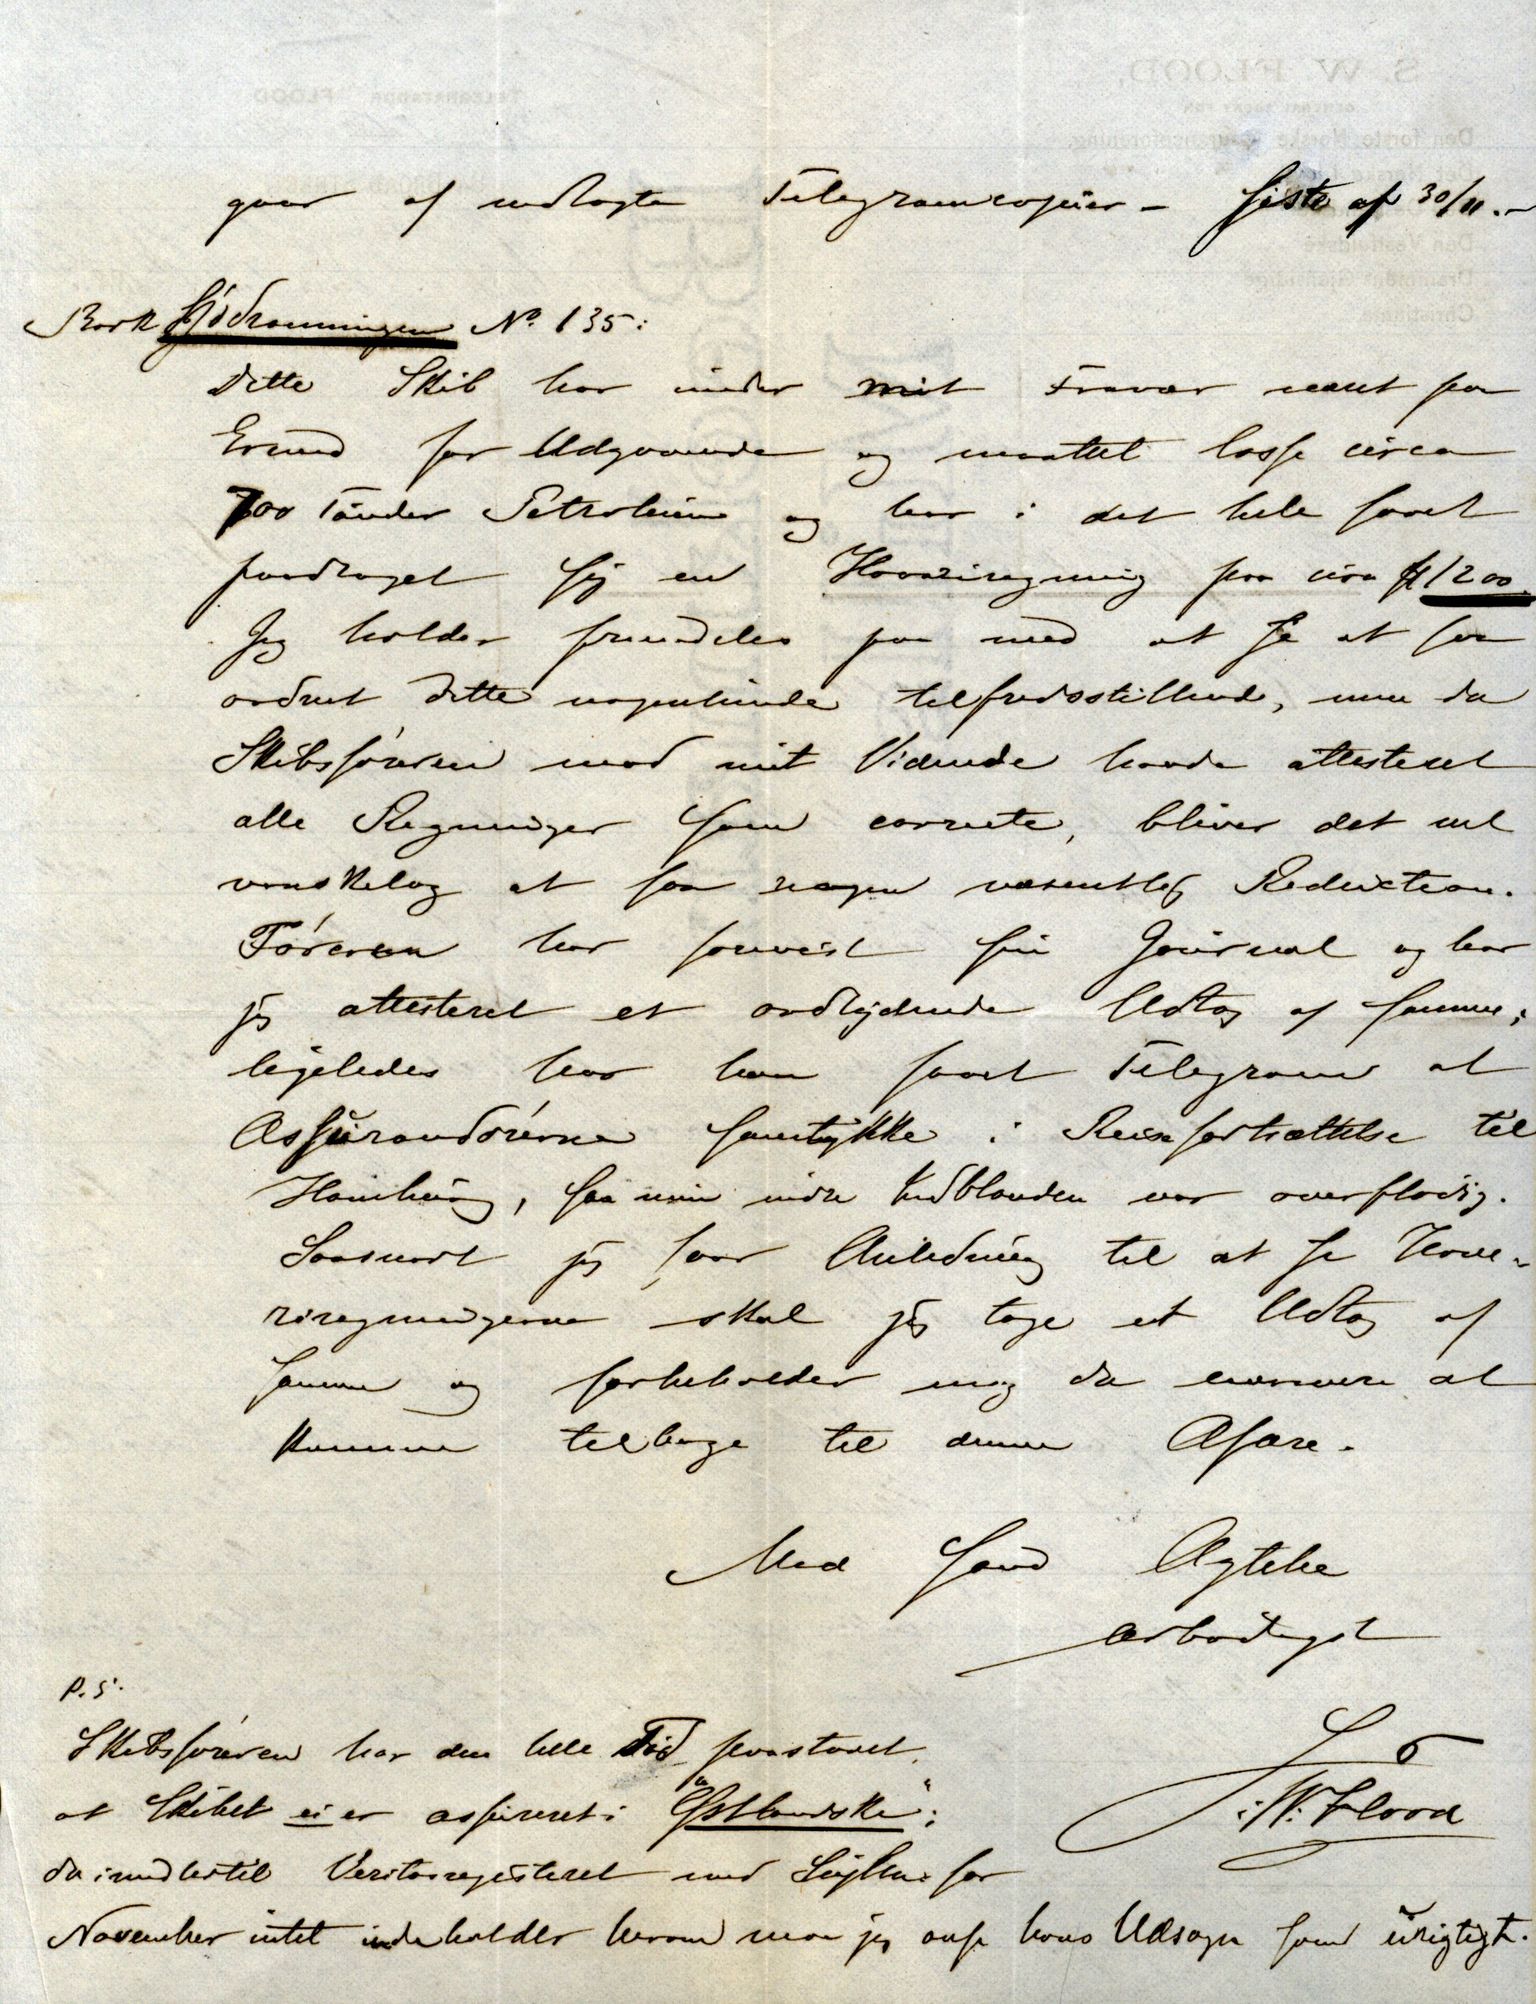 gaar af vedlagte Telegramcopier – siste af 30/11. –
Bark Sjødronningen No. 135:
Dette Skib har under mit Fravær været paa
Grund for Udgaaende og maattet losse circa
700 Tønder Petroleum og har i det hele faaet
paadraget sig en Havariregning paa circa $1200.
Jeg holder fremdeles paa med at se at faa
ordnet dette nogenlunde tilfredsstillende, men da
Skibsføreren mod mit Vidende havde attesteret
alle Regninger som correcte, bliver det vel
vanskelig at faa nogen væsentlig Reduction.
Føreren har forevist sin Journal og har
jeg attesteret et ordlydende Udtog af samme;
ligeledes har han faaet Telegram at
Assurandørerne samtykke i Reisefortsættelse til
Hamburg, saa min videre Indblanden var overflødig.
Saasnart jeg faar Anledning til at se Hava-
riregningerne skal jeg tage et Udtog af
samme og forbeholder mig da nærmere at
komme tilbage til denne Afære.
Med sand Agtelse
ærbødigst
S. W. Flood
P.S.
Skibsføreren har den hele Tid paastaaet,
at Skibet ei er assureret i "Østlandske";
da imidlertid Veritasregisteret med Suppl. for
November intet indeholder herom maa jeg anse hans Udsagn som urigtigt.
S. W. FLOOD,
TELEGRAFADR. FLOOD